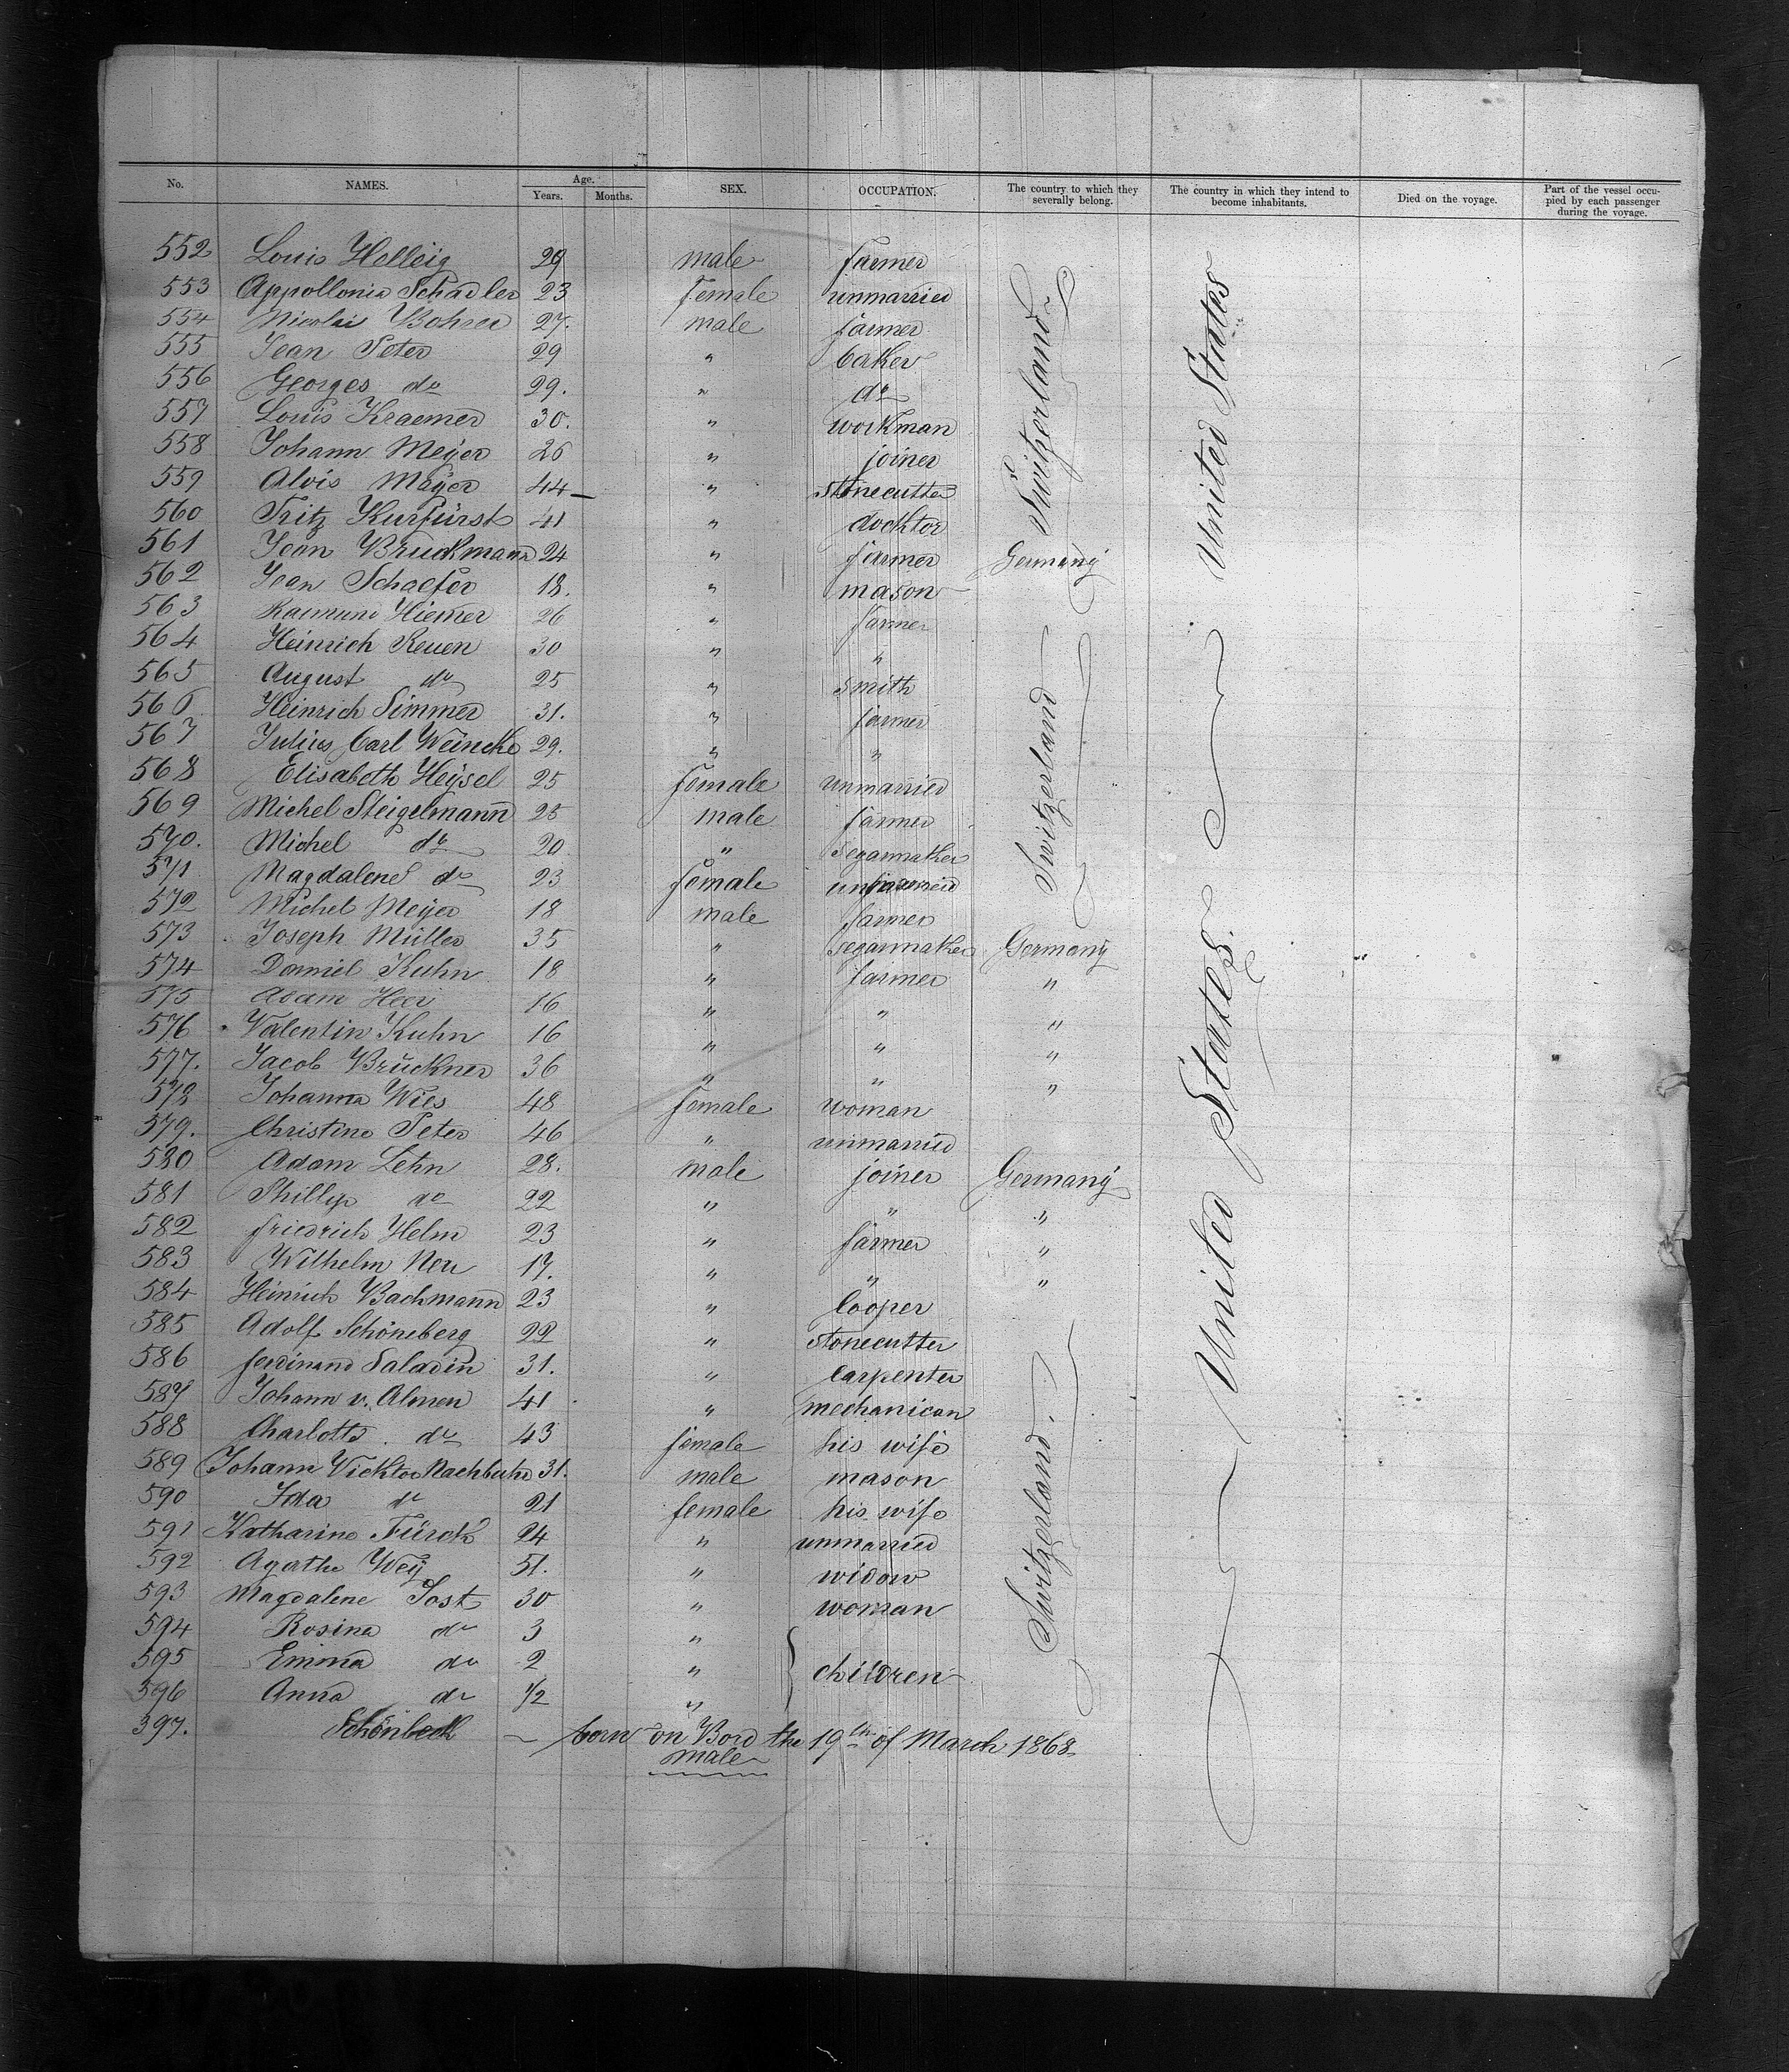 No. NAMES. Age. Years. Months. SEX. OCCUPATION. The country to which they severally belong. The country in which they intend to become inhabitants. Died on the voyage. Part of the vessel occupied by each passenger during the voyage.
552 Louis Helleig 29 male farmer
553 Appollonia Schadler 23 female unmarried
554 Nicolai Bohrer 27. male farmer
555 Jean Peter 29 " baker
556 Georges do 29. " do
557 Louis Kraemer 30. " workman
558 Johann Meyer 26 " joiner
559 Alois Mayer 44 " stonecutter
560 Fritz Kurfürst 41 " docktor
Switzerland
United States
561 Jean Bruckmann 24 " farmer Germany
562 Jean Schaefer 18. " mason
563 Raimund Hiemer 26 " farmer
564 Heinrich Reuen 30 " "
565 August do 25 " smith
566 Heinrich Simmer 31. " farmer
567 Julius Carl Weincke 29. " "
568 Elisabeth Heysel 25 female unmarried
569 Michel Steigelmann 25 male farmer
570. Michel do 20 " segarmaker
571 Magdalene do 23 female unmarried
572 Michel Meyer 18 male farmer
Switzerland
573 Joseph Müller 35 " segarmaker Germany
574 Daniel Kuhn 18 " farmer "
575 Adam Heer 16 " " "
576 Valentin Kuhn 16 " " "
577. Jacob Brückner 36 " " "
578 Johanna Wies 48 female woman
579. Christine Peter 46 " unmarried
580 Adam Lehn 28. male joiner Germany
581 Phillip do 22 " " "
582 Friedrich Helm 23 " farmer "
583 Wilhelm Neu 17. " " "
United States
584 Heinrich Bachmann 23 " Cooper
585 Adolf Schöneberg 22 " stonecutter
586 Ferdinand Saladin 31. " carpenter
587 Johann v. Almen 41 " mechanican
588 Charlotte do 43 female his wife
589 Johann Vicktor Nachbuhr 31. male mason
590 Ida do 21 female his wife
591 Katharine Fürck 24 " unmarried
592 Agathe Wey 51. " widow
593 Magdalene Jost 30 " woman
594 Rosina do 3 "
595 Emma do 2 " children
596 Anna do 1/2 "
Switzerland.
397. Schönbeck — born on Bord the 19th of March 1868
male